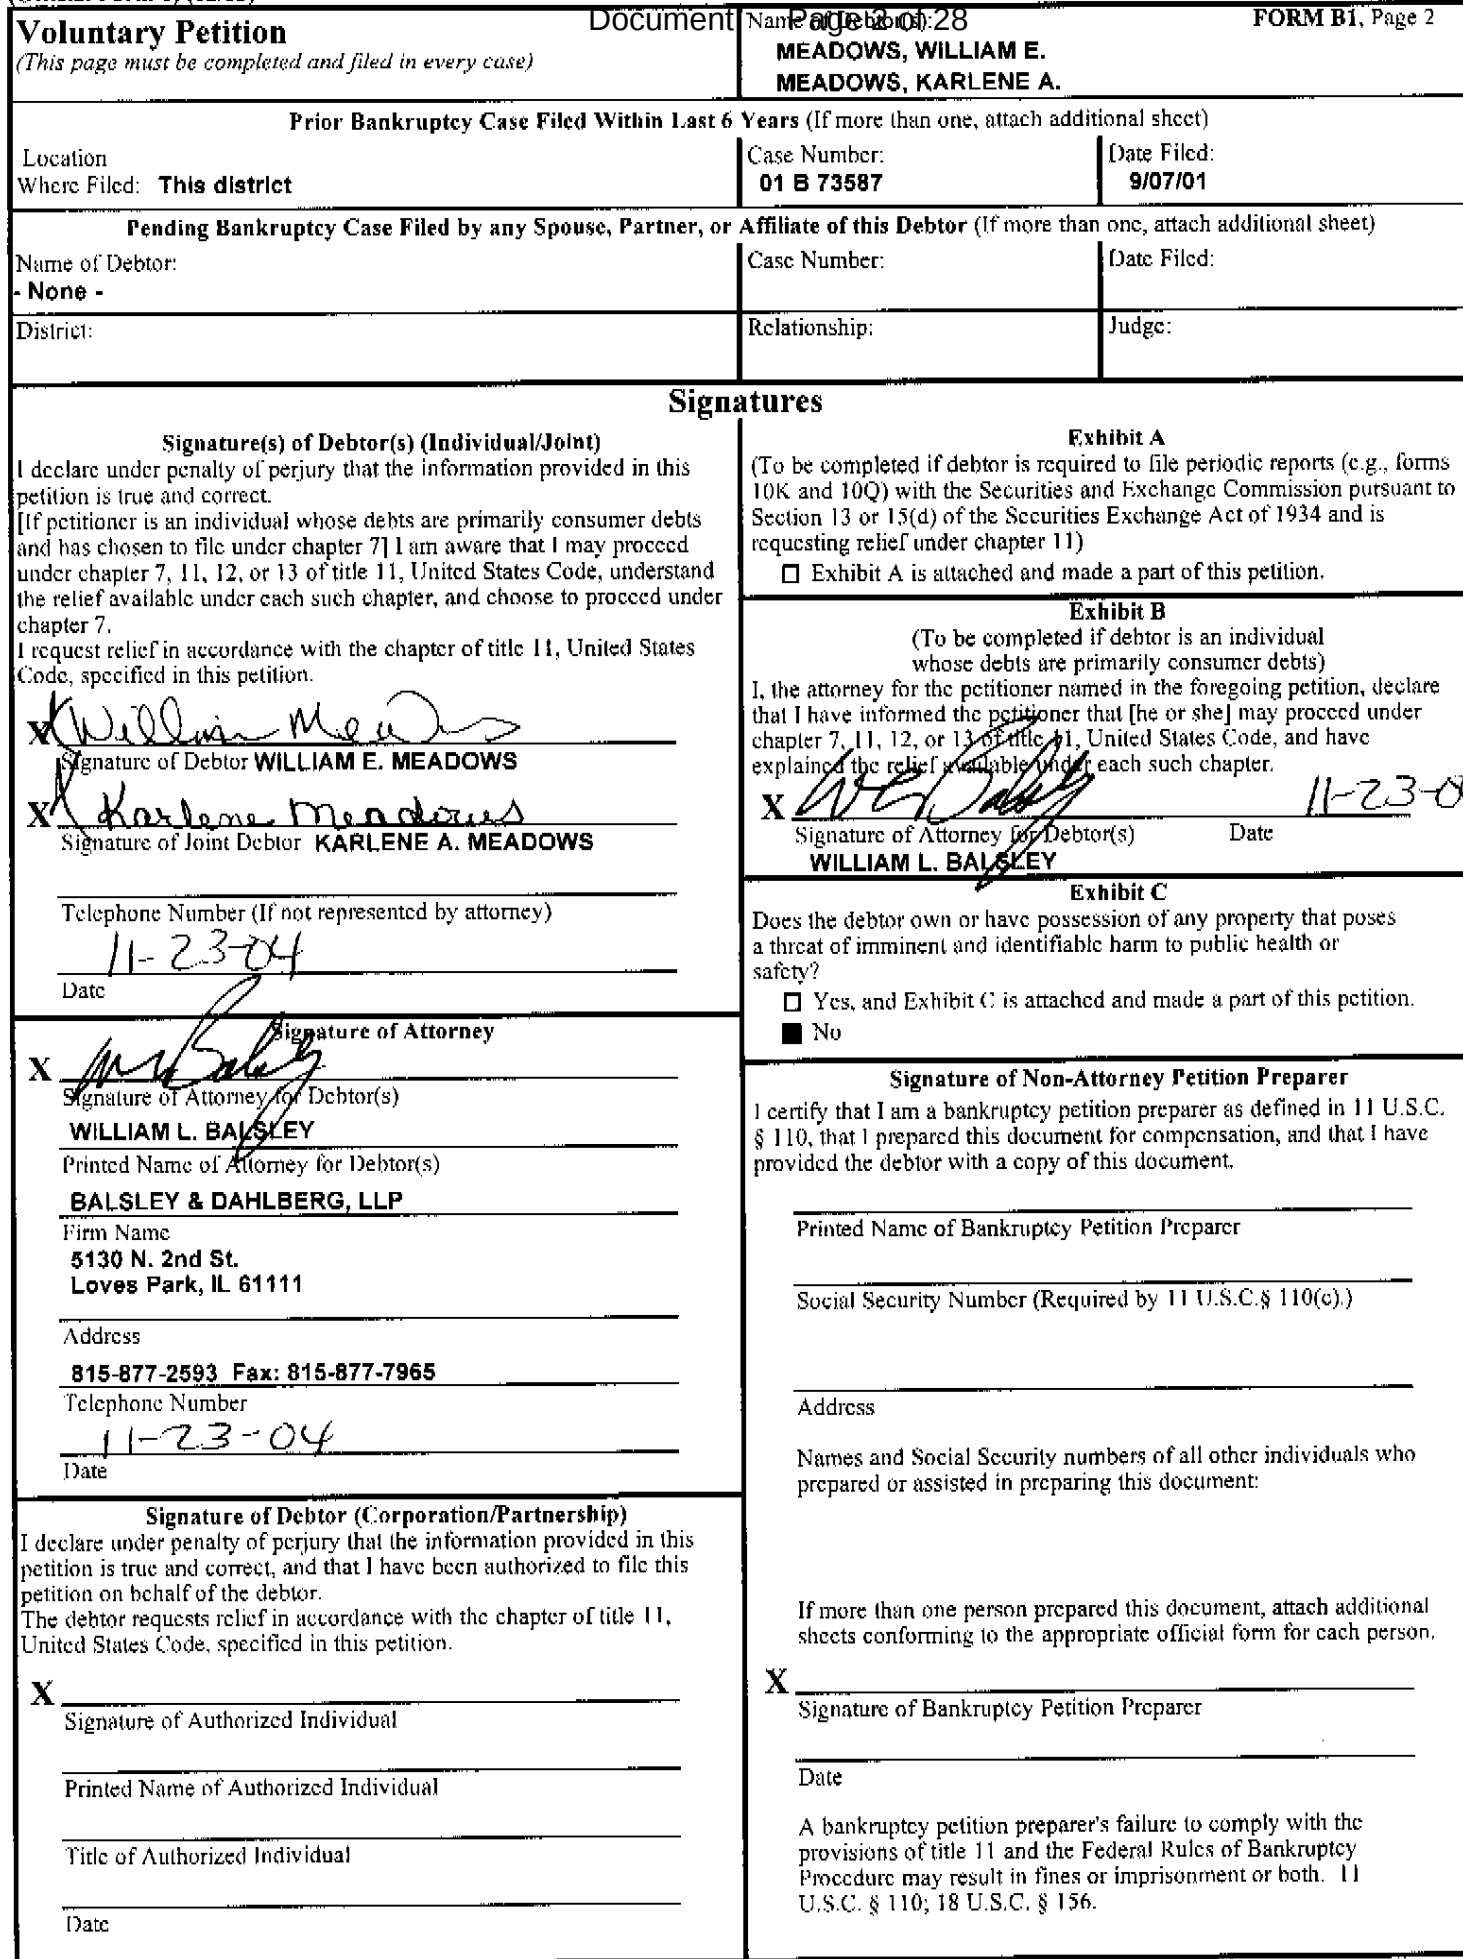 Document Page 2 of 28
Voluntary Petition
(This page must be completed and filed in every case)
Name of Debtor(s):
MEADOWS, WILLIAM E.
MEADOWS, KARLENE A.
FORM B1, Page 2
Prior Bankruptcy Case Filed Within Last 6 Years (If more than one, attach additional sheet)
Location
Where Filed: This district
Case Number:
01 B 73587
Date Filed:
9/07/01
Pending Bankruptcy Case Filed by any Spouse, Partner, or Affiliate of this Debtor (If more than one, attach additional sheet)
Name of Debtor:
- None -
Case Number:
Date Filed:
District:
Relationship:
Judge:
Signatures
Signature(s) of Debtor(s) (Individual/Joint)
I declare under penalty of perjury that the information provided in this
petition is true and correct.
[If petitioner is an individual whose debts are primarily consumer debts
and has chosen to file under chapter 7] I am aware that I may proceed
under chapter 7, 11, 12, or 13 of title 11, United States Code, understand
the relief available under each such chapter, and choose to proceed under
chapter 7.
I request relief in accordance with the chapter of title 11, United States
Code, specified in this petition.
X William Meadows
Signature of Debtor WILLIAM E. MEADOWS
X Karlene Meadows
Signature of Joint Debtor KARLENE A. MEADOWS
Telephone Number (If not represented by attorney)
11-23-04
Date
Signature of Attorney
X
Signature of Attorney for Debtor(s)
WILLIAM L. BALSLEY
Printed Name of Attorney for Debtor(s)
BALSLEY & DAHLBERG, LLP
Firm Name
5130 N. 2nd St.
Loves Park, IL 61111
Address
815-877-2593 Fax: 815-877-7965
Telephone Number
11-23-04
Date
Signature of Debtor (Corporation/Partnership)
I declare under penalty of perjury that the information provided in this
petition is true and correct, and that I have been authorized to file this
petition on behalf of the debtor.
The debtor requests relief in accordance with the chapter of title 11,
United States Code, specified in this petition.
X
Signature of Authorized Individual
Printed Name of Authorized Individual
Title of Authorized Individual
Date
Exhibit A
(To be completed if debtor is required to file periodic reports (e.g., forms
10K and 10Q) with the Securities and Exchange Commission pursuant to
Section 13 or 15(d) of the Securities Exchange Act of 1934 and is
requesting relief under chapter 11)
☐ Exhibit A is attached and made a part of this petition.
Exhibit B
(To be completed if debtor is an individual
whose debts are primarily consumer debts)
I, the attorney for the petitioner named in the foregoing petition, declare
that I have informed the petitioner that [he or she] may proceed under
chapter 7, 11, 12, or 13 of title 11, United States Code, and have
explained the relief available under each such chapter.
X 11-23-0
Signature of Attorney for Debtor(s) Date
WILLIAM L. BALSLEY
Exhibit C
Does the debtor own or have possession of any property that poses
a threat of imminent and identifiable harm to public health or
safety?
☐ Yes, and Exhibit C is attached and made a part of this petition.
■ No
Signature of Non-Attorney Petition Preparer
I certify that I am a bankruptcy petition preparer as defined in 11 U.S.C.
§ 110, that I prepared this document for compensation, and that I have
provided the debtor with a copy of this document.
Printed Name of Bankruptcy Petition Preparer
Social Security Number (Required by 11 U.S.C.§ 110(c).)
Address
Names and Social Security numbers of all other individuals who
prepared or assisted in preparing this document:
If more than one person prepared this document, attach additional
sheets conforming to the appropriate official form for each person.
X
Signature of Bankruptcy Petition Preparer
Date
A bankruptcy petition preparer's failure to comply with the
provisions of title 11 and the Federal Rules of Bankruptcy
Procedure may result in fines or imprisonment or both. 11
U.S.C. § 110; 18 U.S.C. § 156.